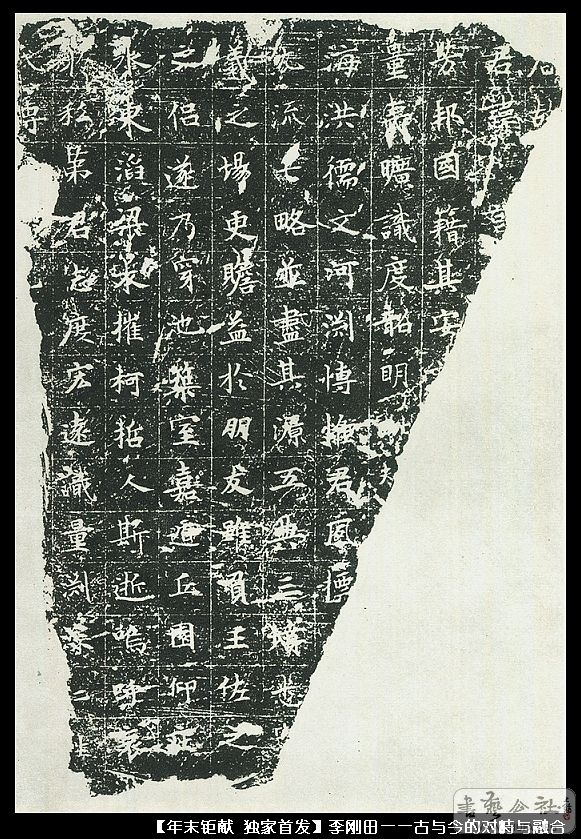 君
邦國籍其安
量曠識度韶明
海洪儒文河渊博惟君風標
流七略並盡其源五典三墳
義之場更贍益於朋友雖負王佐之
之侶遂乃穿池築室嘉遁丘園仰
水東滔梁木摧柯喆人斯逝嗚呼哀
於私第君志度宏遠識量渊
【年末钜献 独家首发】李刚田——古与今的对峙与融合
書藝公社